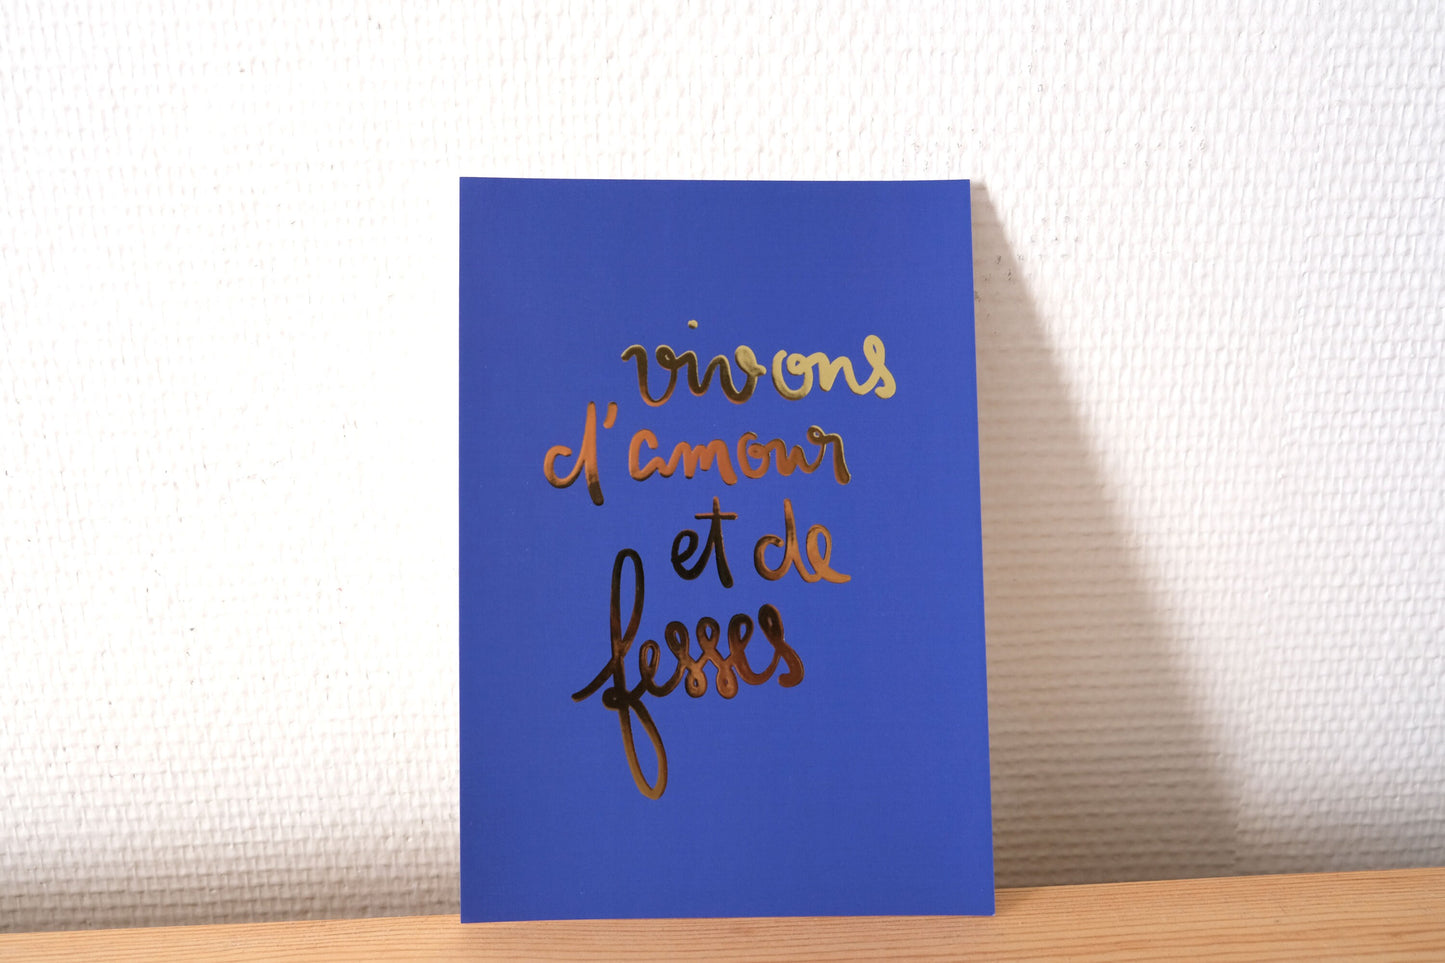 vivons
d'amour
et de
fesses